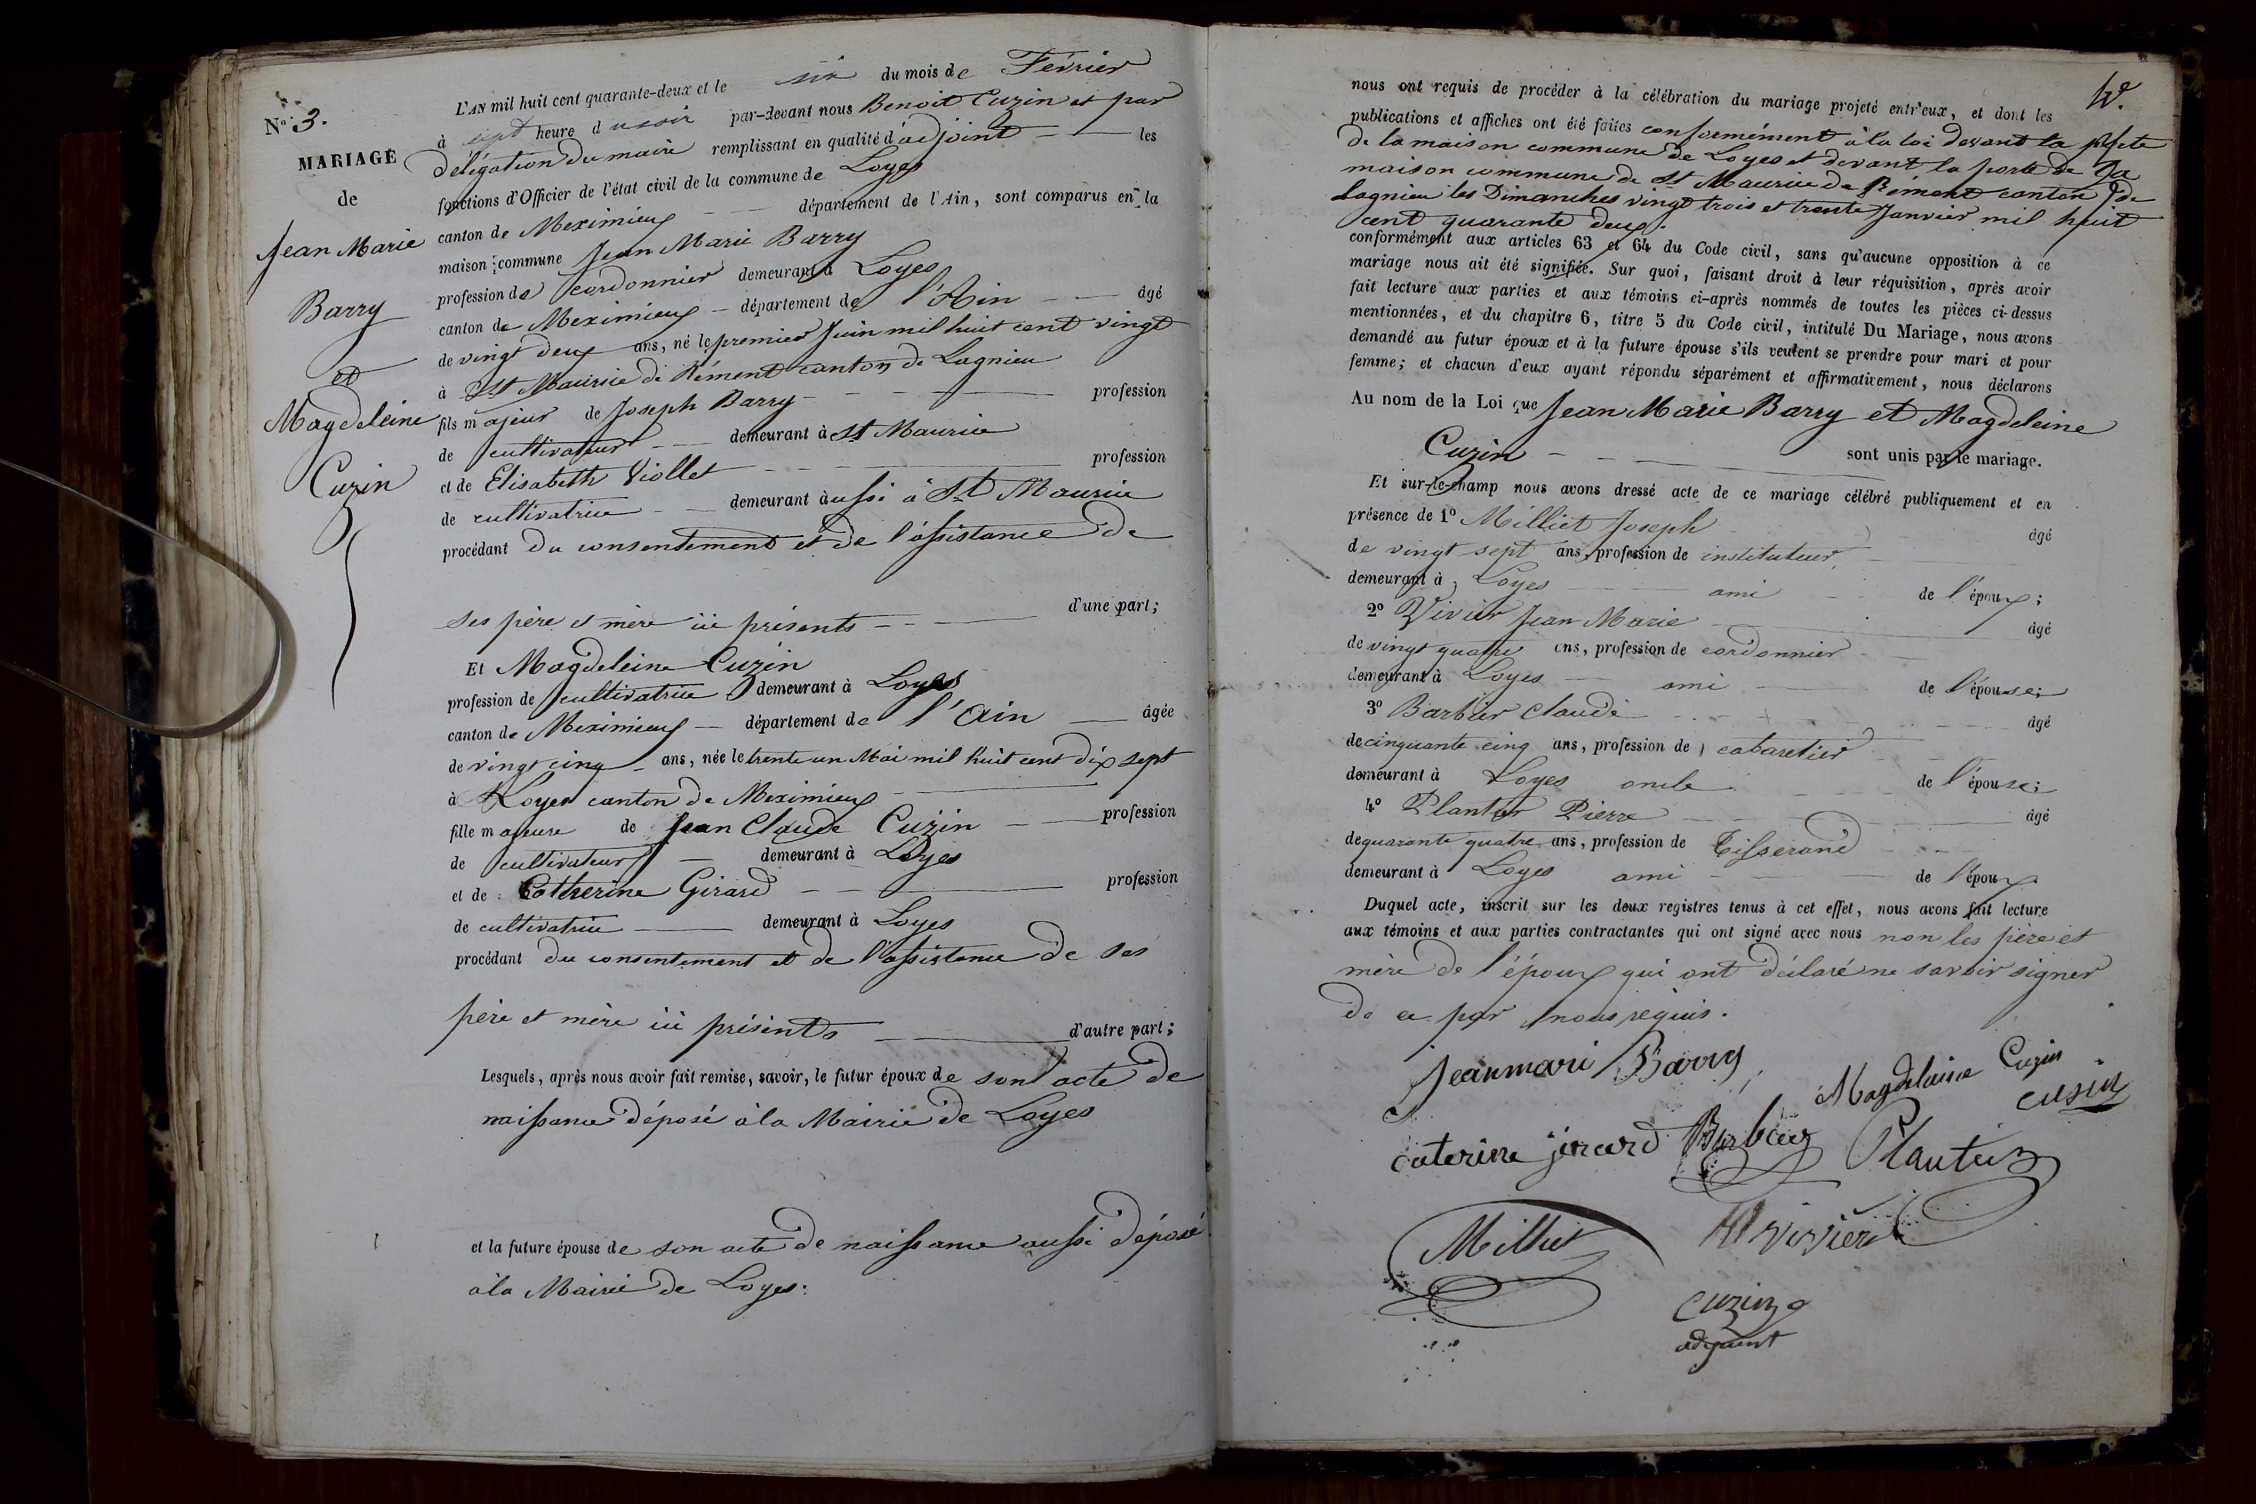 No. 3.
MARIAGE
de
Jean Marie
Barry
et
Magdeleine
Cuzin
L'AN mil huit cent quarante-deux et le six du mois de Février
à sept heure du soir par-devant nous Benoit Cuzin et par
délégation du maire remplissant en qualité d'adjoint les
fonctions d'Officier de l'état civil de la commune de Loyes
canton de Meximieux département de l'Ain, sont comparus en la
maison commune Jean Marie Barry
profession de cordonnier demeurant à Loyes
canton de Meximieux département de l'Ain âgé
de vingt deux ans, né le premier Juin mil huit cent vingt
à St Maurice de Rément canton de Lagnieu
fils majeur de Joseph Barry profession
de cultivateur demeurant à St Maurice
et de Elisabeth Viollet profession
de cultivatrice demeurant aussi à St Maurice
procédant du consentement et de l'assistance de
ses père et mère ici présents d'une part;
Et Magdeleine Cuzin
profession de cultivatrice demeurant à Loyes
canton de Meximieux département de l'Ain âgée
de vingt cinq ans, née le trente un Mai mil huit cent dix sept
à Loyes canton de Meximieux
fille majeure de Jean Claude Cuzin profession
de cultivateur demeurant à Loyes
et de Catherine Girard profession
de cultivatrice demeurant à Loyes
procédant du consentement et de l'assistance de ses
père et mère ici présents d'autre part;
Lesquels, après nous avoir fait remise, savoir, le futur époux de son acte de
naissance déposé à la Mairie de Loyes
et la future épouse de son acte de naissance aussi déposé
à la Mairie de Loyes.
nous ont requis de procéder à la célébration du mariage projeté entr'eux, et dont les
publications et affiches ont été faites conformément à la loi devant la porte
de la maison commune de Loyes et devant la porte de la
maison commune de St Maurice de Rément canton de
Lagnieu les Dimanches vingt trois et trente Janvier mil huit
cent quarante deux.
conformément aux articles 63 et 64 du Code civil, sans qu'aucune opposition à ce
mariage nous ait été signifiée. Sur quoi, faisant droit à leur réquisition, après avoir
fait lecture aux parties et aux témoins ci-après nommés de toutes les pièces ci-dessus
mentionnées, et du chapitre 6, titre 5 du Code civil, intitulé Du Mariage, nous avons
demandé au futur époux et à la future épouse s'ils veulent se prendre pour mari et pour
femme; et chacun d'eux ayant répondu séparément et affirmativement, nous déclarons
Au nom de la Loi que Jean Marie Barry et Magdeleine
Cuzin sont unis par le mariage.
Et sur-le-champ nous avons dressé acte de ce mariage célébré publiquement et en
présence de 1º Milliet Joseph âgé
de vingt sept ans, profession de instituteur
demeurant à Loyes ami de l'époux;
2º Vivier Jean Marie âgé
de vingt quatre ans, profession de cordonnier
demeurant à Loyes ami de l'épouse;
3º Barbier Claude âgé
de cinquante cinq ans, profession de cabaretier
demeurant à Loyes oncle de l'épouse;
4º Plantier Pierre âgé
de quarante quatre ans, profession de Tisserand
demeurant à Loyes ami de l'époux
Duquel acte, inscrit sur les deux registres tenus à cet effet, nous avons fait lecture
aux témoins et aux parties contractantes qui ont signé avec nous non les père et
mère de l'époux qui ont déclaré ne savoir signer
de ce par nous requis.
Jeanmari Barry
Magdelaine Cuzin
cusin
caterine jirard Barbier Plantier
Milliet vivier
cuzin
adjoint